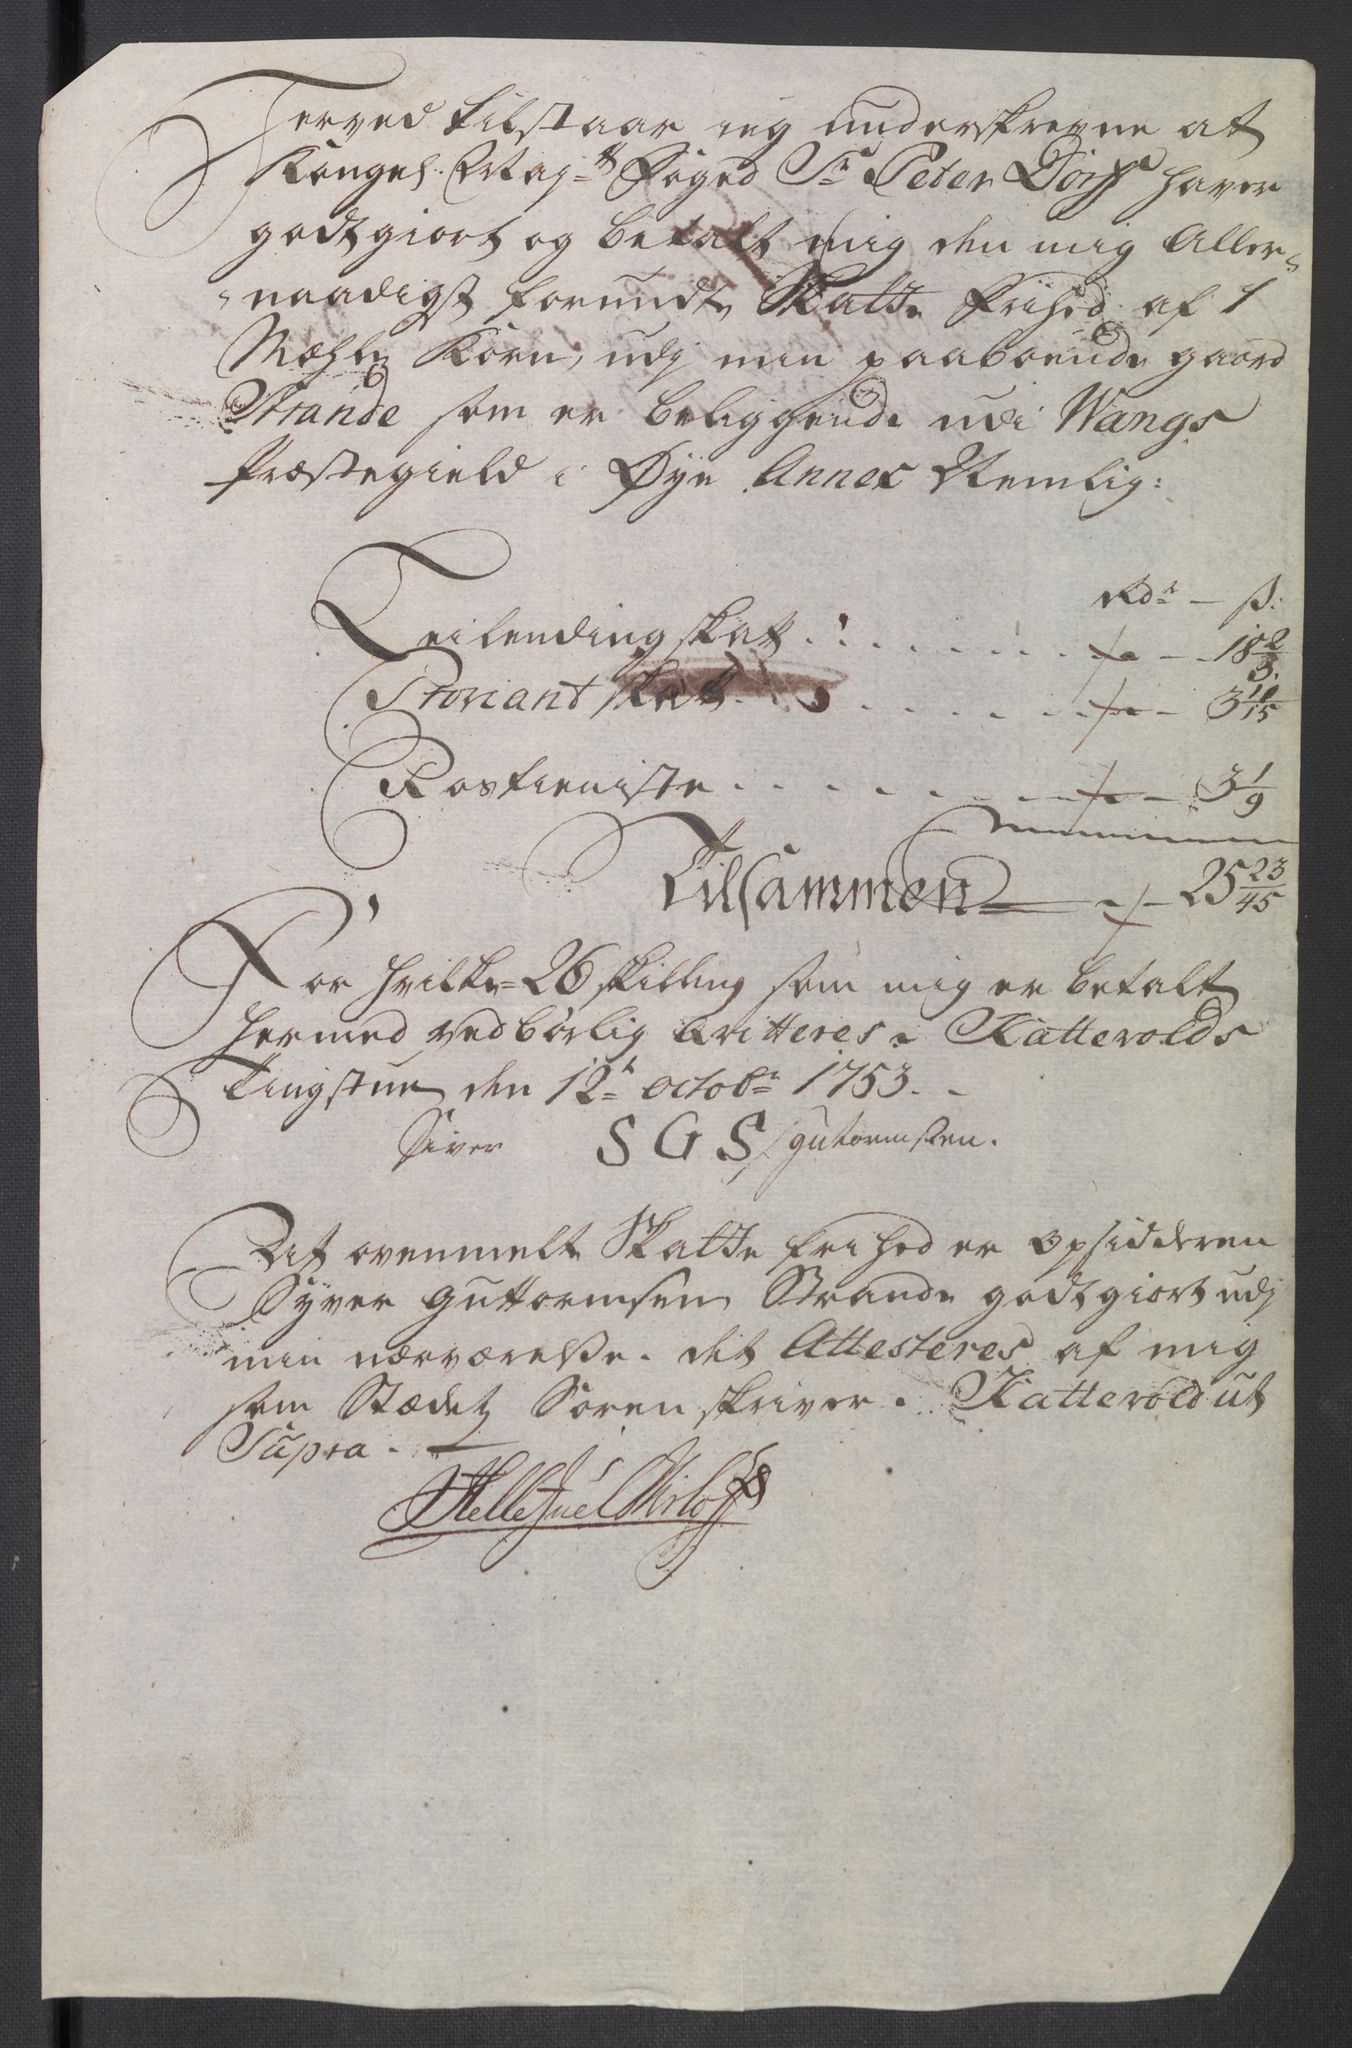 Herved tilstaar ieg underskrevne at
Kongel. Mayts Foged Sr Peter Dorff haver
godtgiort og betalt mig den mig Aller-
naadigst forundte Skatte Frihed af 1
Mæhle Korn, udj min paaboende gaard
Strande som er beliggende udi Wangs
Præstegield i Øye Annex Nemlig:
Rdr - ß:
Leilendingskatt - 18 2/3
Proviant skatt - 3 11/15
Rostieniste - 3 1/9
Tilsammen - 25 23/45
For hvilke 26 skilling som mig er betalt
hermed vedbørlig kvitteres. Katterolds
tingstue den 12t Octobr 1753.
Siver S G S Guttormsen.
Dit ovenmelte Skatte frihed er Opsidderen
Syver Guttormsen Strande godtgiort udj
min nærværelse. det Attesteres af mig
som Stædets Sorenskriver. Katterold ut
Supra.
Helle Juel